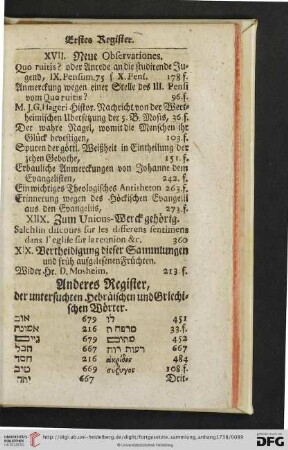 Erstes Register.
XVII. Neue Observationes.
Quo ruitis? oder Anrede an die studirende Ju-
gend, IX. Pensum. 75 f X. Pens. 178 f.
Anmerckung wegen einer Stelle des III. Pensi
vom Quo ruitis? 96. f.
M. J. G. Hageri Histor. Nachricht von der Wert-
heimischen Ubersetzung der 5. B. Mosis, 36. f.
Der wahre Nagel, womit die Menschen ihr
Glück bevestigen, 103. f.
Spuren der göttl. Weißheit in Eintheilung der
zehen Gebothe, 151. f.
Erbauliche Anmerckungen von Johanne dem
Evangelisten, 242. f.
Ein wichtiges Theologisches Antitheton 263. f.
Erinnerung wegen des Höckischen Evangelii
aus den Evangeliis, 273. f.
XIIX. Zum Unions-Werck gehörig.
Salchlin discours sur les differens sentimens
dans l'eglise sur la reunion &c. 360
XIX. Vertheidigung dieser Sammlungen
und früh aufgelesenen Früchten.
Wider Hr. D. Mosheim. 213. f.
Anderes Register,
der untersuchten Hebräischen und Griechi-
schen Wörter.
אוב 679 לו 451
אמונה 216 33. f.
679 452
הבל 667 רעות רוח 667
חסד 216 ἀκρίδες 484
טוב 669 σύζυγος 108. f.
יהד 667 Drit-
http://digi.ub.uni-heidelberg.de/diglit/fortgesetzte_sammlung_anhang1738/0089
© Universitätsbibliothek Heidelberg
gefördert durch die
DFG